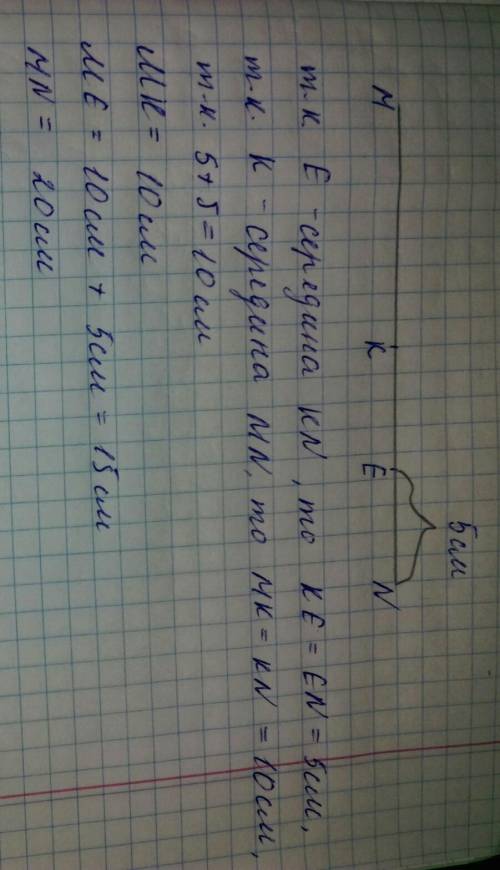 5см
М К Е N
т.к. Е - середина KN, то КЕ = EN = 5см,
т.к. К - середина MN, то МК = KN = 10см,
т.к. 5 + 5 = 10см
МК = 10см
МЕ = 10см + 5см = 15см
MN = 20см